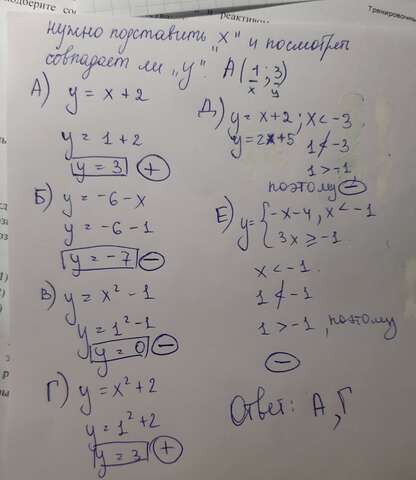 нужно подставить "x" и посмотреть
совпадает ли „y". A(1;3)
x y
А) y = x + 2
y = 1 + 2
y = 3 +
Б) y = -6 - x
y = -6 - 1
y = -7 -
В) y = x² - 1
y = 1² - 1
y = 0 -
Г) y = x² + 2
y = 1² + 2
y = 3 +
Д) y = x + 2 ; x < -3
y = 2x + 5 1 ≮ -3
1 > -1
поэтому -
Е) y = { -x - 4, x < -1
3 x ≥ -1
x < -1.
1 ≮ -1
1 > -1, поэтому
-
Ответ: А, Г